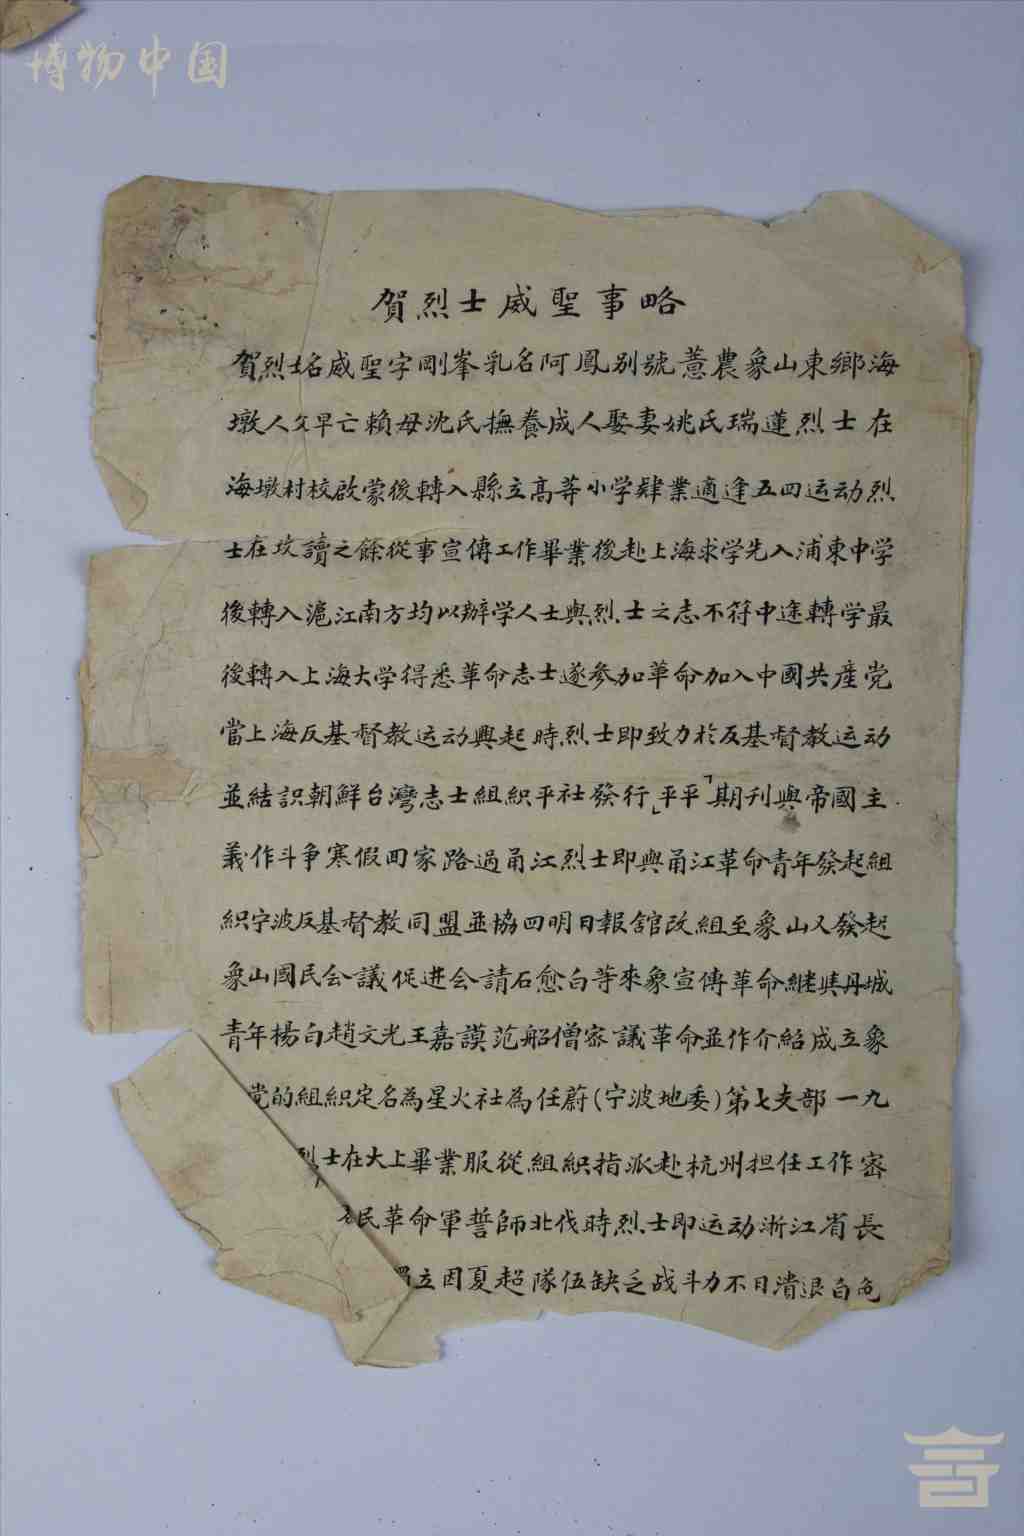 博物中国
賀烈士威聖事略
賀烈士名威聖字剛峯乳名阿鳳别號薏農象山東鄉海
墩人父早亡賴母沈氏撫養成人娶妻姚氏瑞蓮烈士在
海墩村校啟蒙後轉入縣立高等小学肄業適逢五四运动烈
士在攻讀之餘從事宣傳工作畢業後赴上海求学先入浦東中学
後轉入滬江南方均以辦学人士與烈士之志不符中途轉学最
後轉入上海大学得悉革命志士遂参加革命加入中國共產党
當上海反基督教运动興起時烈士即致力於反基督教运动
並結識朝鮮台灣志士組織平社發行「平平」期刊與帝國主
義作斗争寒假回家路過甬江烈士即與甬江革命青年發起組
織宁波反基督教同盟並協四明日報舘改組至象山又發起
象山國民会議促进会請石愈白等來象宣傳革命継與丹城
青年楊白趙文光王嘉謨范船僧密議革命並作介紹成立象
党的組織定名為星火社為任蔚(宁波地委)第七支部一九
烈士在大上畢業服從組織指派赴杭州担任工作密
民革命軍誓師北伐時烈士即运动浙江省長
立因夏超隊伍缺乏战斗力不日潰退白色